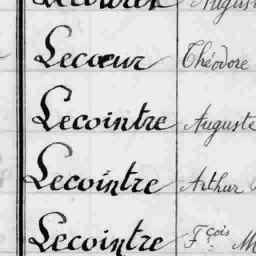 Lecœur Théodore
Lecointre Auguste
Lecointre Arthur
Lecointre Fçois